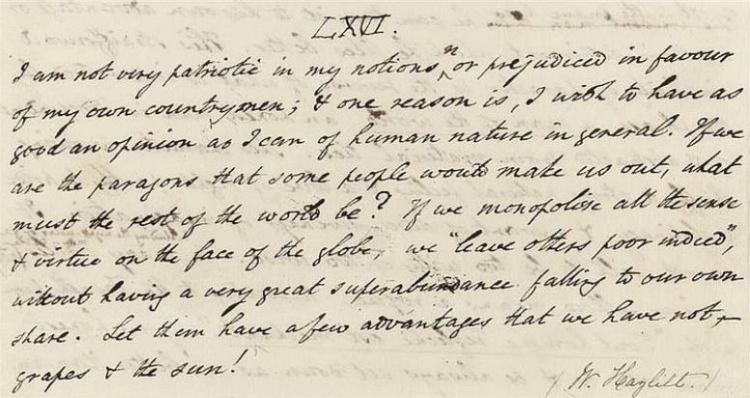 LXVI.
I am not very patriotic in my notions, n or prejudiced in favour
of my own countrymen; & one reason is, I wish to have as
good an opinion as I can of human nature in general. If we
are the paragons that some people would make us out, what
must the rest of the world be? If we monopolise all the sense
& virtue on the face of the globe, we "leave others poor indeed",
without having a very great superabundance falling to our own
share. Let them have a few advantages that we have not —
grapes & the sun!
(W. Hazlitt.)